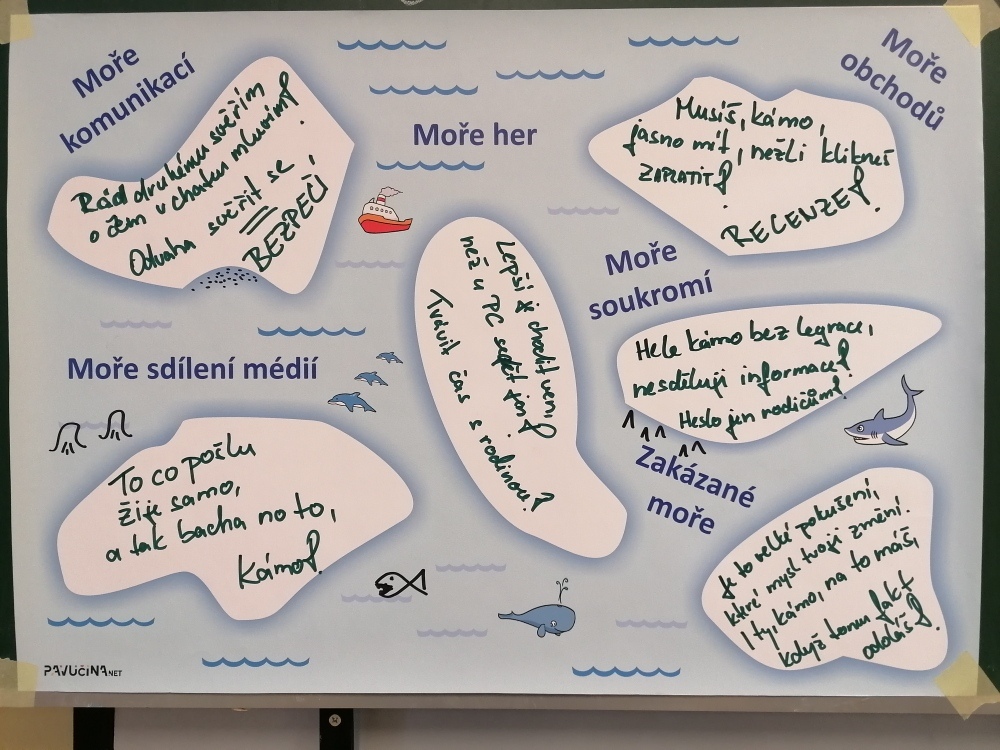 Moře
komunikací
Rád druhému svěřím
o čem v chatu mluvím!
Odvaha svěřit se
BEZPEČÍ
Moře her
Lepší je chodit ven!
než u PC sedět jen!
Trávit čas s rodinou!
Moře
obchodů
Musíš, kámo,
jasno mít, nežli klikneš
ZAPLATIT!
RECENZE!
Moře
soukromí
Hele kámo bez legrace,
nesděluji informace!
Heslo jen rodičům!
Moře sdílení médií
To co pošlu
žije samo,
a tak bacha na to,
kámo!
Zakázané
moře
Je to velké pokušení,
které mysl tvoji změní.
I ty, kámo, na to máš,
když tomu fakt
odoláš!
PAVUČINA.NET